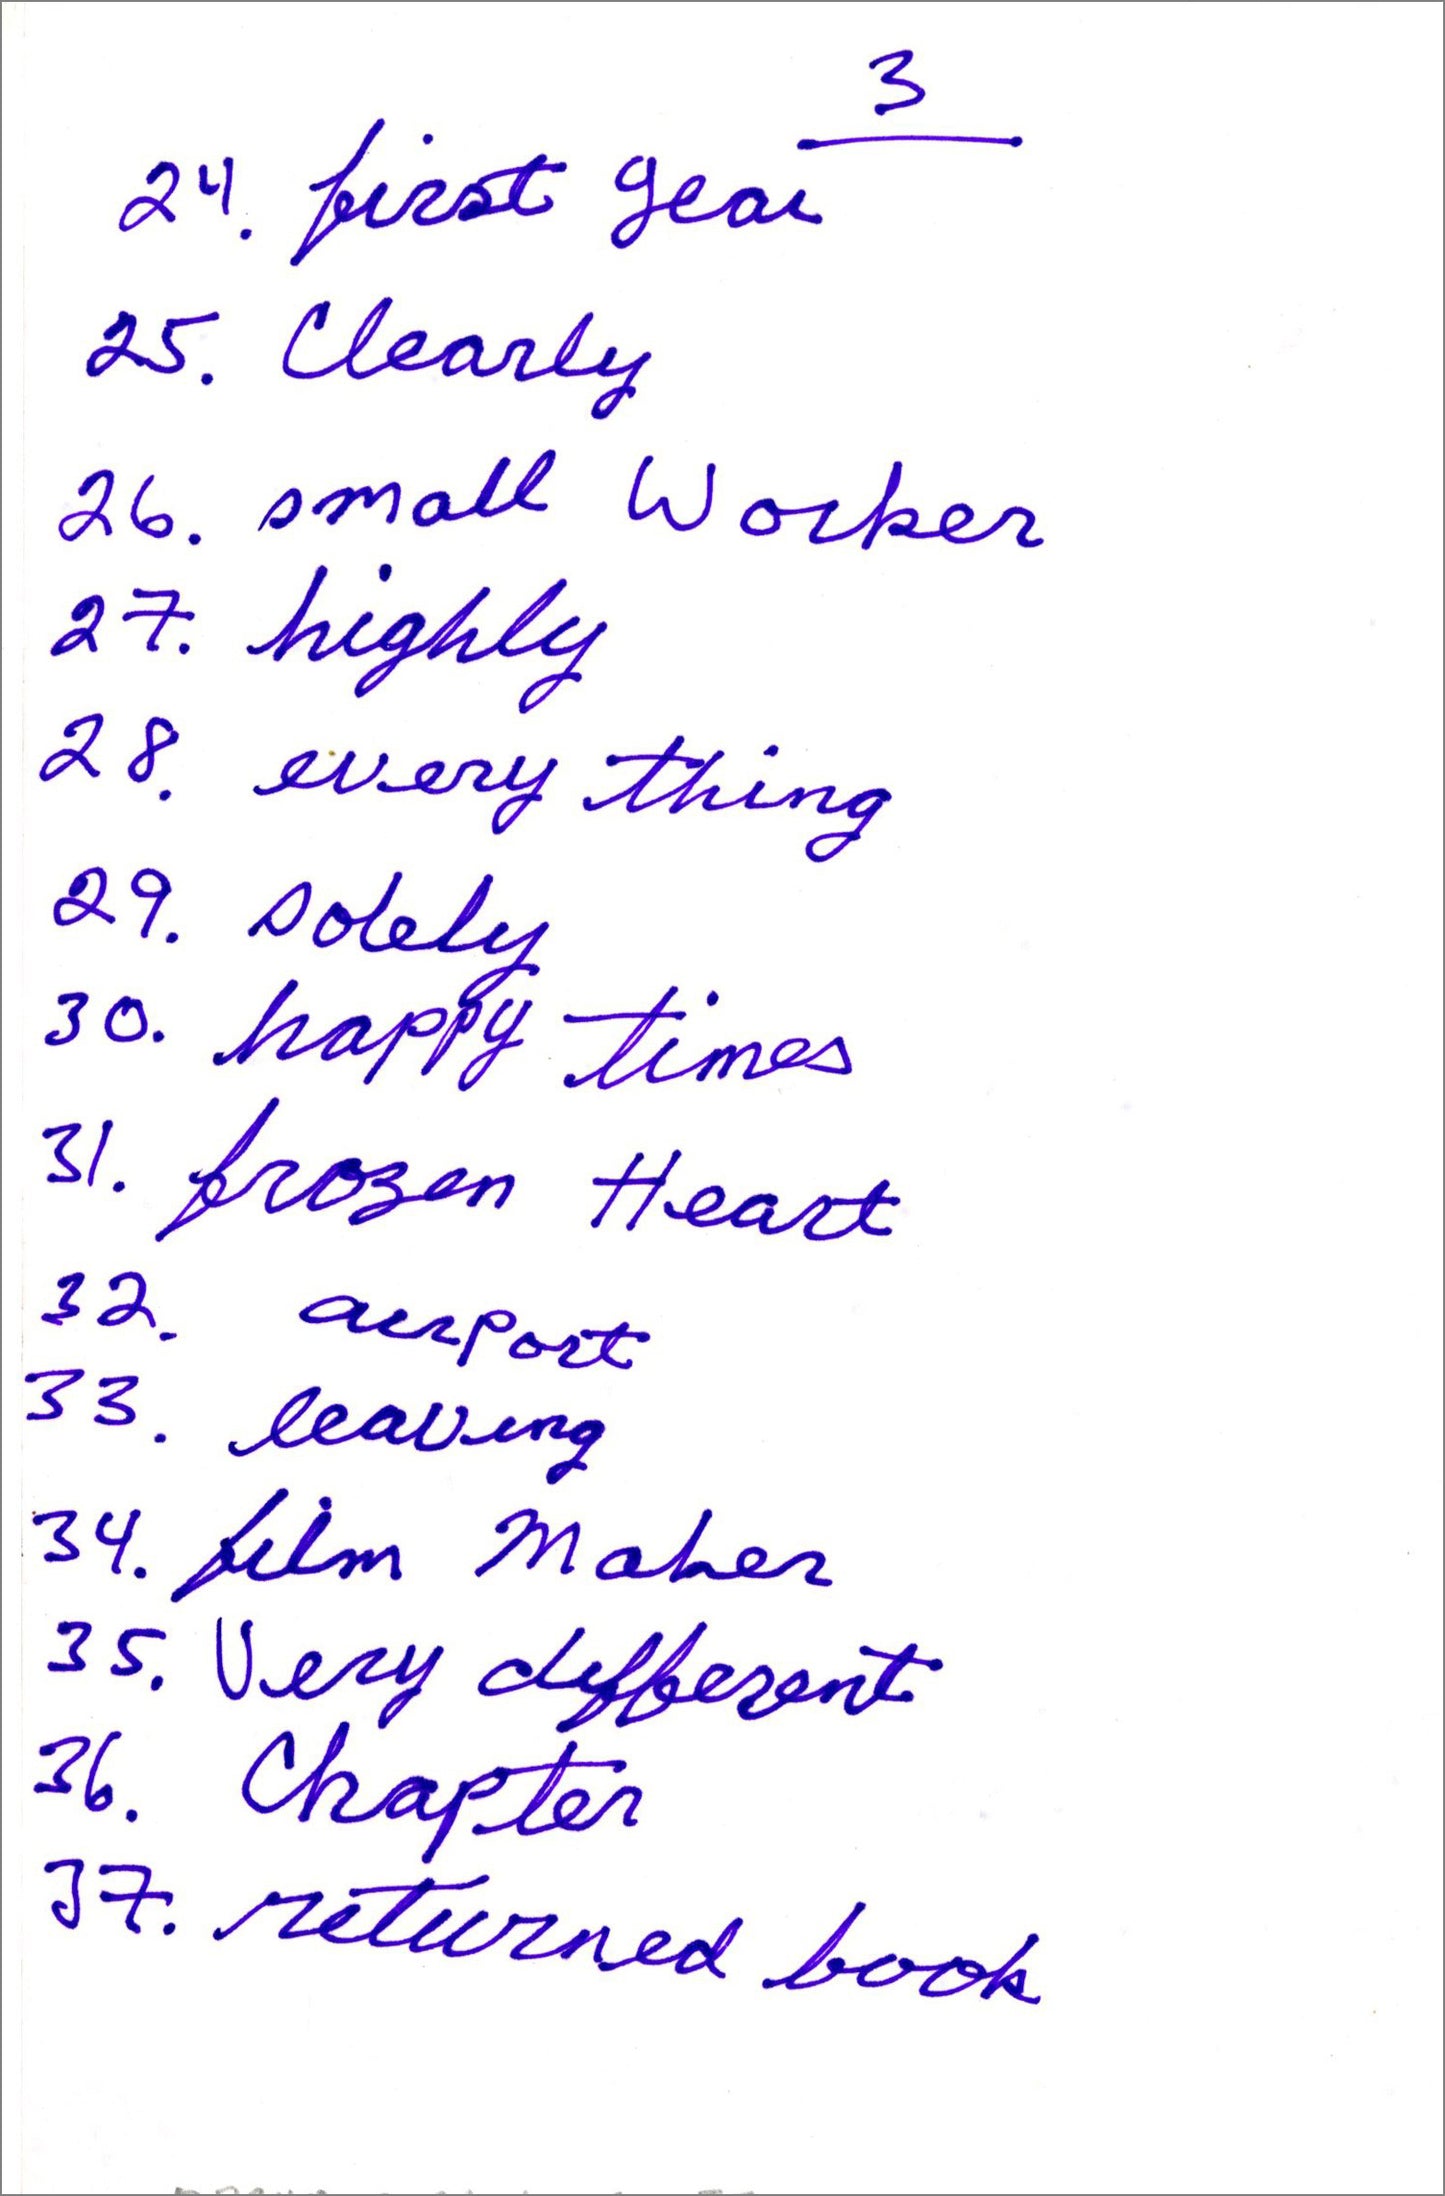 3
24. first gear
25. Clearly
26. small Worker
27. highly
28. every thing
29. solely
30. happy times
31. frozen Heart
32. airport
33. leaving
34. film Maker
35. Very different
36. Chapter
37. returned book